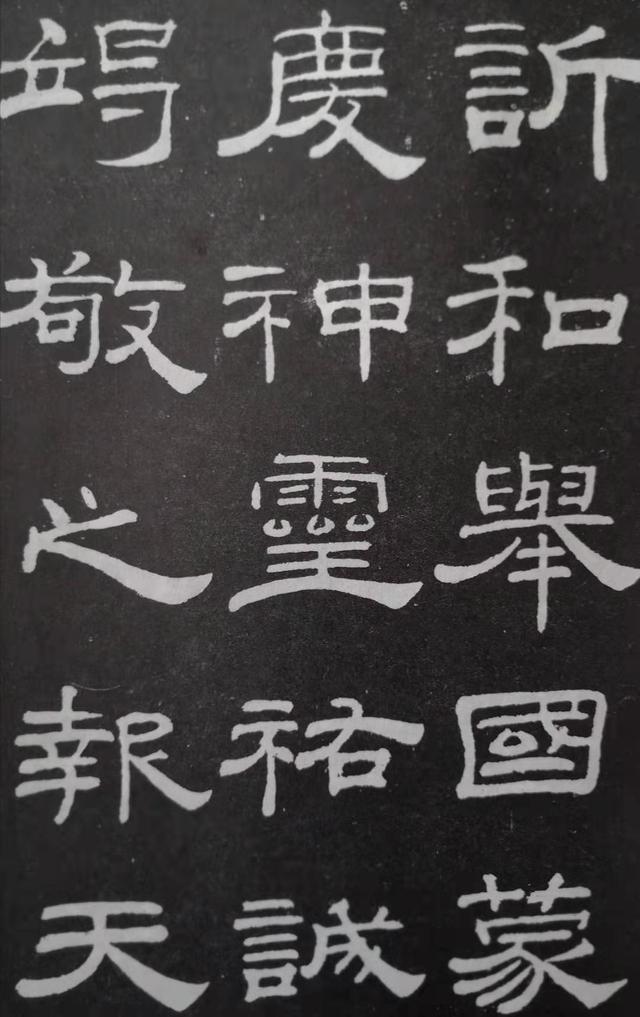 訢和舉國蒙
慶神靈祐誠
竭敬之報天